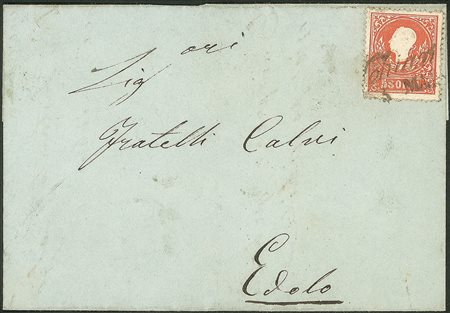 Sig ori
Fratelli Calvi
Edolo